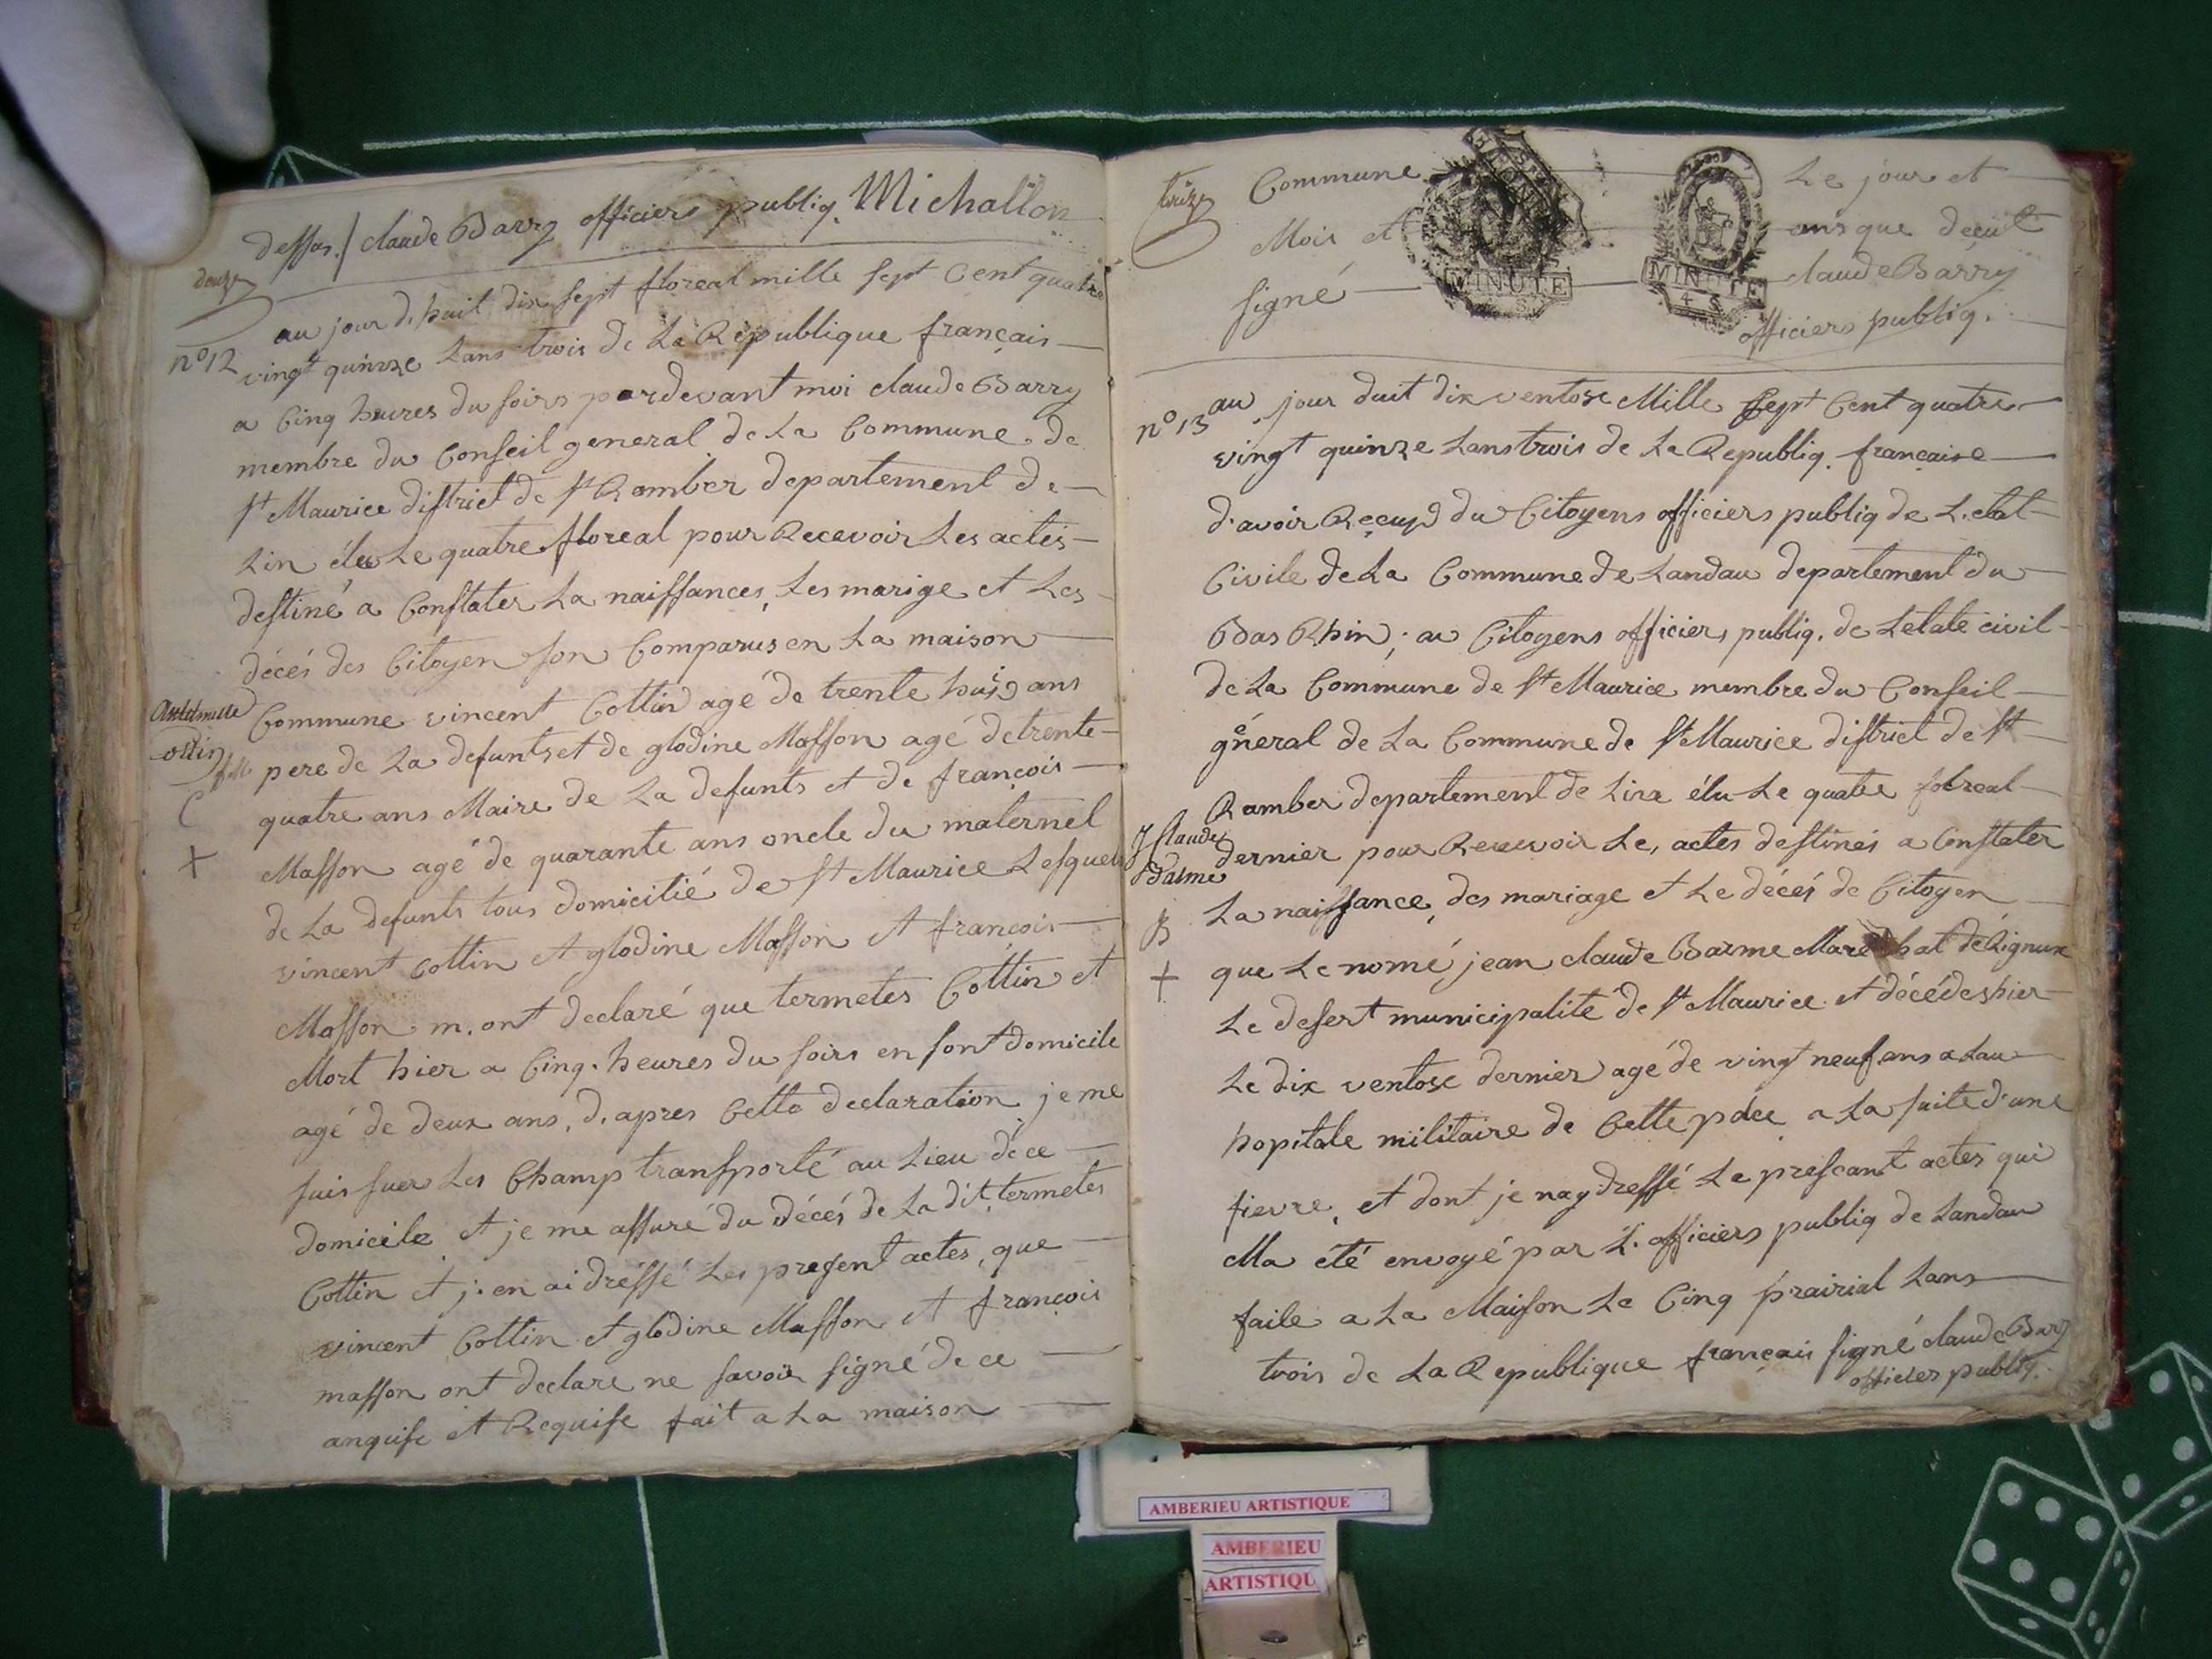 dessus./ claude Barry officiers publiq. Michallon
douze
au jour d.huit dix sept floreal mille sept Cent quatre
n° 12
vingt quinze Lans trois de La Republique français
a Cinq heures du soirs pardevant moi claude Barry
membre du Conseil general de La Commune de
st Maurice district de st Ramber departement de
Lin élu Le quatre floreal pour Recevoir Les actes
destiné a Constater La naissances, Les marige et Les
décés des Citoyen son Comparus en La maison
Commune vincent Cottin agé de trente huis ans
pere de La defunts et de glodine Masson agé de trente
quatre ans Maire de La defunts et de françois
C
Masson agé de quarante ans oncle du maternel
+
de La defunts tous domicilié de st Maurice Lesquels
vincent Cottin et glodine Masson et françois
Masson m.ont declaré que termetes Cottin et
Mort hier a Cinq. heures du soirs en sont domicile
agé de deux ans, d.apres Cette declaration je me
suis suer Les Champ transporté au Lieu de ce
domicile et je me assuré du décés de La dit. termetes
Cottin et j.en ai dressé Les present actes, que
vincent Cottin et glodine Masson et françois
masson ont declare ne savoir signé de ce
anquise et Requise fait a La maison
treize
Commune Le jour et
Mois et ans que decut
MINUTE
MINUTE
4 S
signé claude Barry
officiers publiq.
n° 13
au jour duit dix ventose Mille sept Cent quatre
vingt quinze Lans trois de La Republiq. française
d'avoir Reçuyd du Citoyens officiers publiq de L.etat
Civile de La Commune de Landau departement du
Bas Rhin; au Citoyens officiers publiq. de Letate civil
de La Commune de st Maurice membre du Conseil
géneral de La Commune de st Maurice district de st
Ramber departement de Linx élu Le quatre flolreal
J Claude
dernier pour Recevoir Le, actes destinés a Constater
Barme
La naissance, des mariage et Le décés de Citoyen
B
que Le nomé jean claude Barme Marechal de Lignux
+
Le desert municipalité de st Maurice et décédes hier
Le dix ventose dernier agé de vingt neuf ans a Lau
hopitale militaire de Cette place a La suite d'une
fievre, et dont je nay dressé Le prescant actes qui
Ma été envoyé par L'officiers publiq de Landau
faite a La Maison Le Cinq prairial Lans
trois de La Republique français signé claude Barry
officier publiq.
AMBERIEU ARTISTIQUE
AMBERIEU
ARTISTIQU